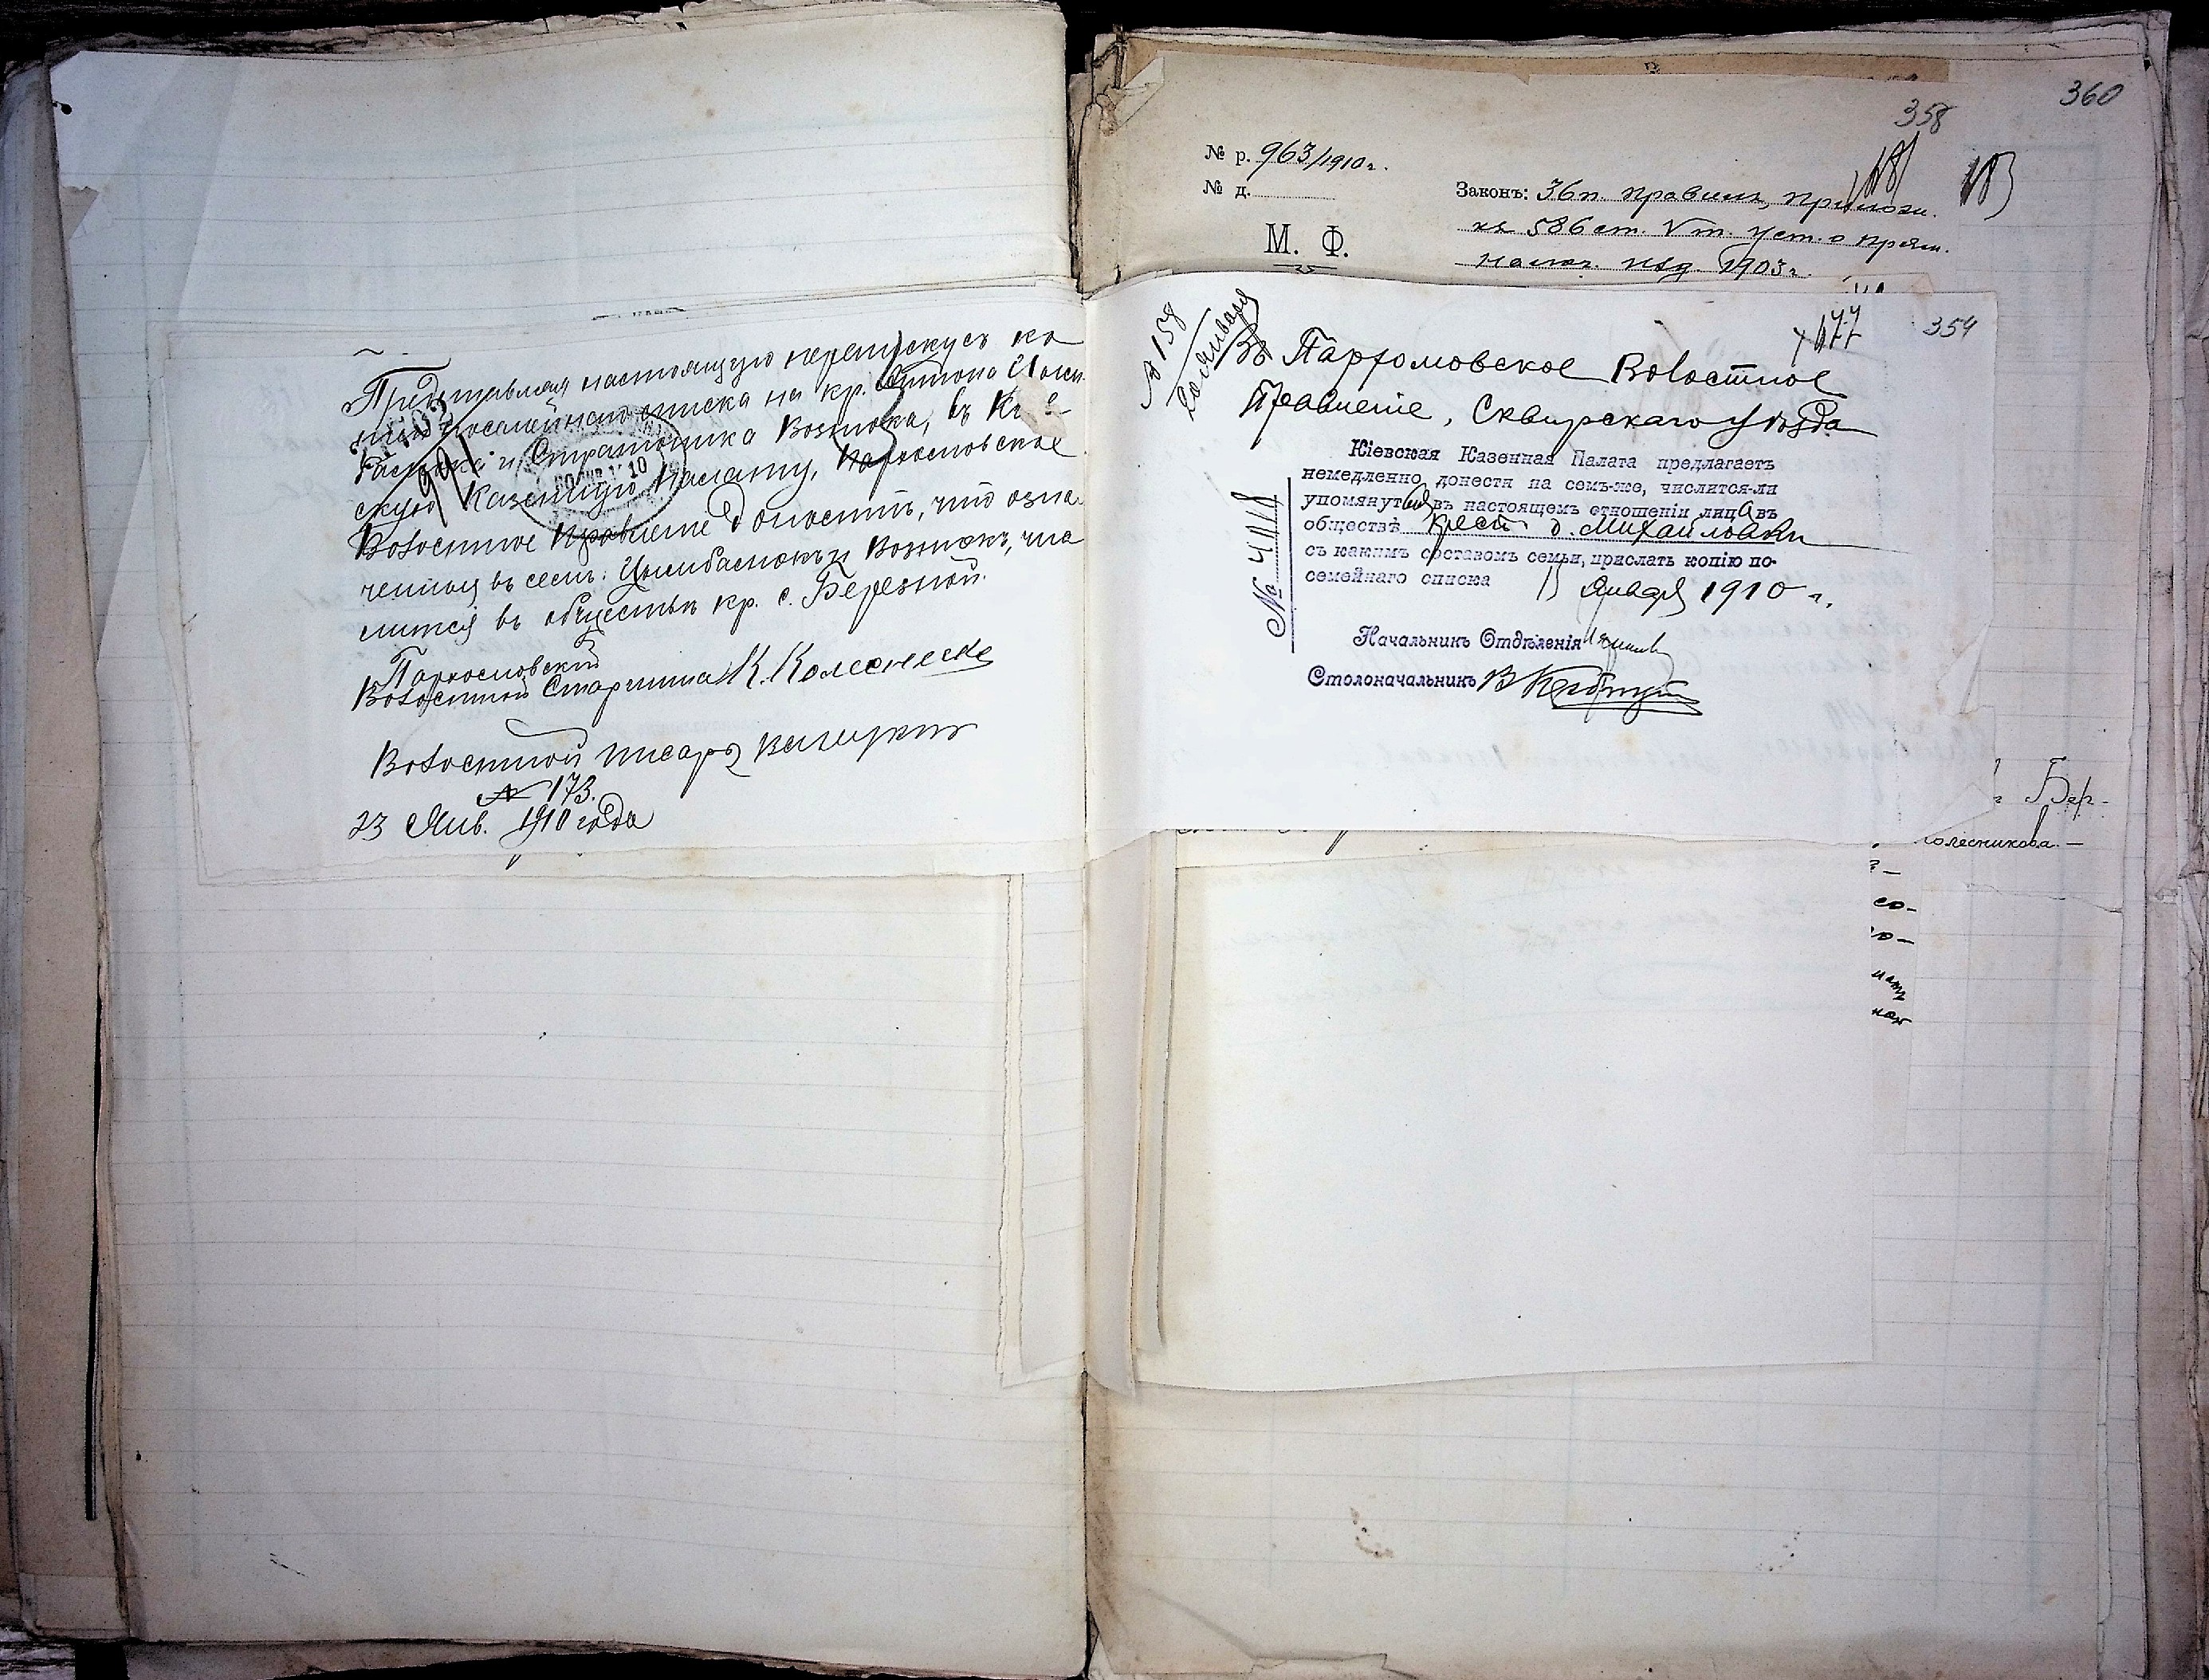 Представляя настоящую переписку съ ко
посемейнаго списка на кр. Антона
и Стратоника Вознюка, въ
скую Казенную Палату, Пархомовское
Волостное Правленіе доноситъ, что озна
ченныя въ семъ: Цымбалюкъ и Вознюкъ, чис
лится въ обществѣ кр. с. Березной.
Пархомовскій
Волостной Старшина К. Колесненко
Волостной писарь
№ 173.
23 Янв. 1910 года
360
358
№ р. 963/1910 г.
№ д.
Законъ: 36 п. правилъ, прилож.
къ 586 ст. V т. уст. о прям.
налог. изд. 1903 г.
М. Ф.
354
477
№ 158
20 января
Въ Пархомовское Волостное
Правленіе, Сквирскаго уѣзда
Кіевская Казенная Палата предлагаетъ
немедленно донести на семъ-же, числится-ли
упомянутыя въ настоящемъ отношеніи лица въ
обществѣ крест. д. Михайловки
съ какимъ составомъ семьи, прислать копію по-
семейнаго списка
15 января 1910 г.
№ 4118
Начальникъ Отдѣленія
Столоначальникъ
Бер-
олесникова.—
со-